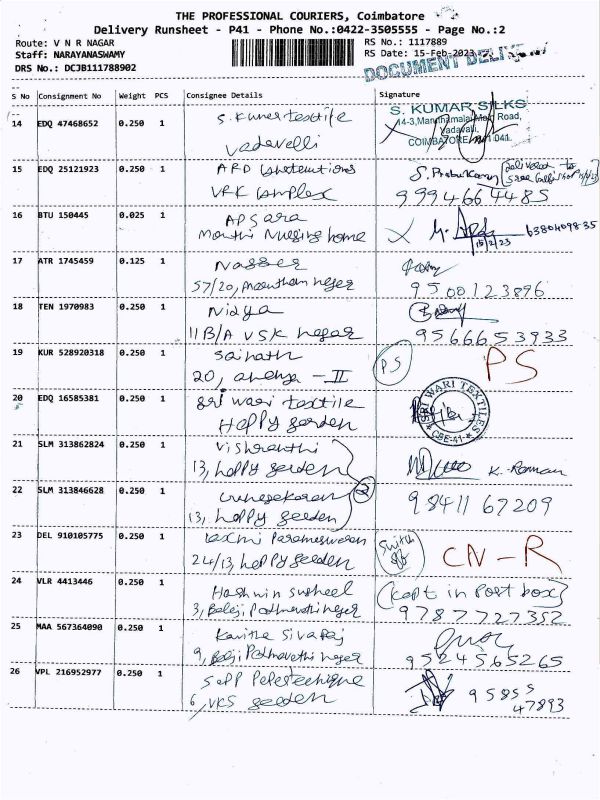 THE PROFESSIONAL COURIERS, Coimbatore
Delivery Runsheet - P41 - Phone No.:0422-3505555 - Page No.:2
Route: V N R NAGAR
RS No.: 1117889
Staff: NARAYANASWAMY
RS Date: 15-Feb-2023
DRS No.: DCJB111788902
DOCUMENT
S No Consignment No Weight PCS Consignee Details Signature
14 EDQ 47468652 0.250 1 S. Kumar textile
Vadavelli
S. KUMAR SILKS
Road,
Vadavalli,
COIMBATORE 641 041.
15 EDQ 25121923 0.250 1 ARD
VRK Complex
S. Prabu Kumar
Delivered to
9994664485
16 BTU 150445 0.025 1 APSara
Nursing home
15/2/23
6380409835
17 ATR 1745459 0.125 1 Nasser
57/20,
9500123896
18 TEN 1970983 0.250 1 Nidya
11B/A VSK nagar
9566653933
19 KUR 528920318 0.250 1 Sainath
20, - II
PS PS
20 EDQ 16585381 0.250 1 Sri wari textile
Happy garden
SRI WARI TEXTILES
CBE-41
21 SLM 313862824 0.250 1
13, happy garden
K. Raman
22 SLM 313846628 0.250 1
13, happy garden
2
9841167209
23 DEL 910105775 0.250 1 Laxmi Parameswaran
24/13, happy garden
Switch
CN-R
24 VLR 4413446 0.250 1 Hashwin Susheel
3, Balaji Padmavathi nager
(Kept in Post box)
9787727352
25 MAA 567364090 0.250 1 Kavitha Sivaraj
9, Balaji Padmavathi nager
9524565265
26 VPL 216952977 0.250 1
6, VKS garden
95855
47893